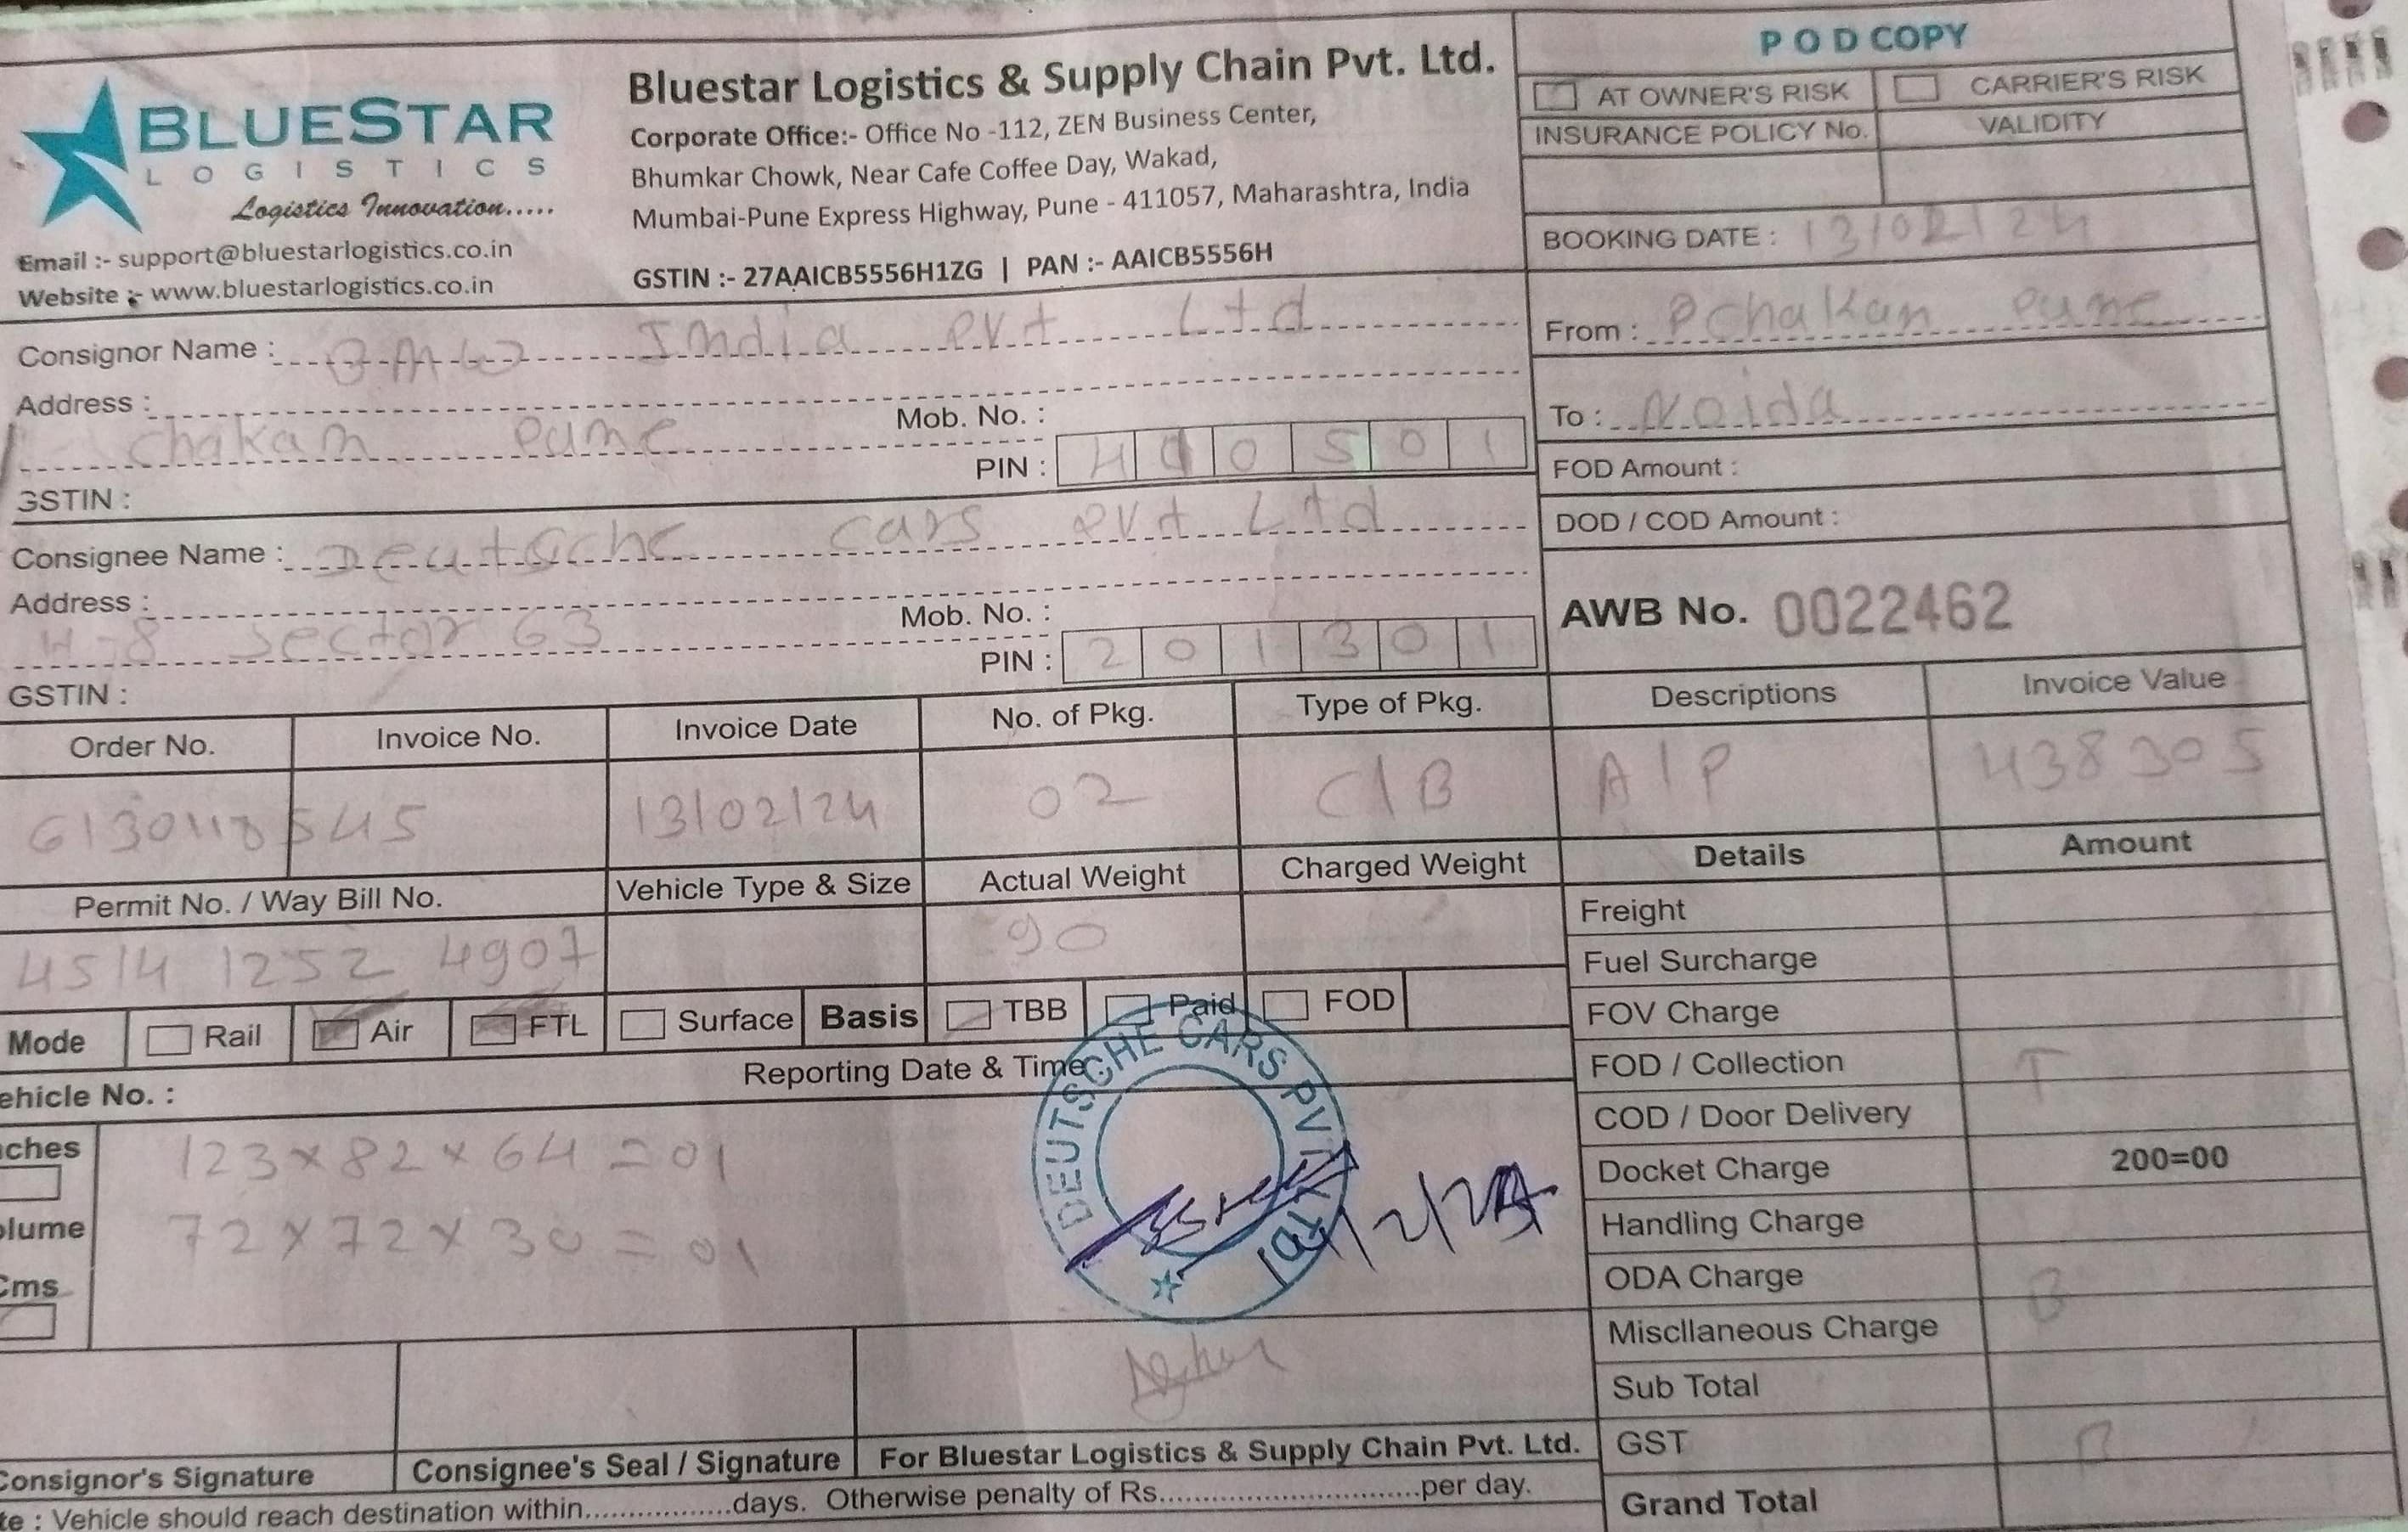 BLUESTAR
LOGISTICS
Logistics Innovation.....
Email :- support@bluestarlogistics.co.in
Website :- www.bluestarlogistics.co.in
Bluestar Logistics & Supply Chain Pvt. Ltd.
Corporate Office:- Office No -112, ZEN Business Center,
Bhumkar Chowk, Near Cafe Coffee Day, Wakad,
Mumbai-Pune Express Highway, Pune - 411057, Maharashtra, India
GSTIN :- 27AAICB5556H1ZG | PAN :- AAICB5556H
POD COPY
AT OWNER'S RISK CARRIER'S RISK
INSURANCE POLICY No. VALIDITY
BOOKING DATE : 13/02/24
From : Chakan Pune
To : Noida
FOD Amount :
DOD / COD Amount :
AWB No. 0022462
Consignor Name : BMW India Pvt Ltd
Address :
Mob. No. :
Chakan Pune
PIN : 410501
GSTIN :
Consignee Name : Deutsche Cars Pvt Ltd
Address :
Mob. No. :
H-8 Sector 63
PIN : 201301
GSTIN :
Order No. Invoice No. Invoice Date No. of Pkg. Type of Pkg. Descriptions Invoice Value
6130118545 13/02/24 02 C/B A/P 438305
Permit No. / Way Bill No. Vehicle Type & Size Actual Weight Charged Weight Details Amount
4514 1252 4907 90
Mode Rail Air FTL Surface Basis TBB Paid FOD
ehicle No. : Reporting Date & Time :
ches
123x82x64 = 01
olume
72x72x30 = 01
Cms
DEUTSCHE CARS PVT. LTD.
14/2/24
Freight
Fuel Surcharge
FOV Charge
FOD / Collection T
COD / Door Delivery
Docket Charge 200=00
Handling Charge
ODA Charge B
Miscllaneous Charge
Sub Total
GST B
Grand Total
Consignor's Signature Consignee's Seal / Signature For Bluestar Logistics & Supply Chain Pvt. Ltd.
te : Vehicle should reach destination within.................days. Otherwise penalty of Rs.............................per day.